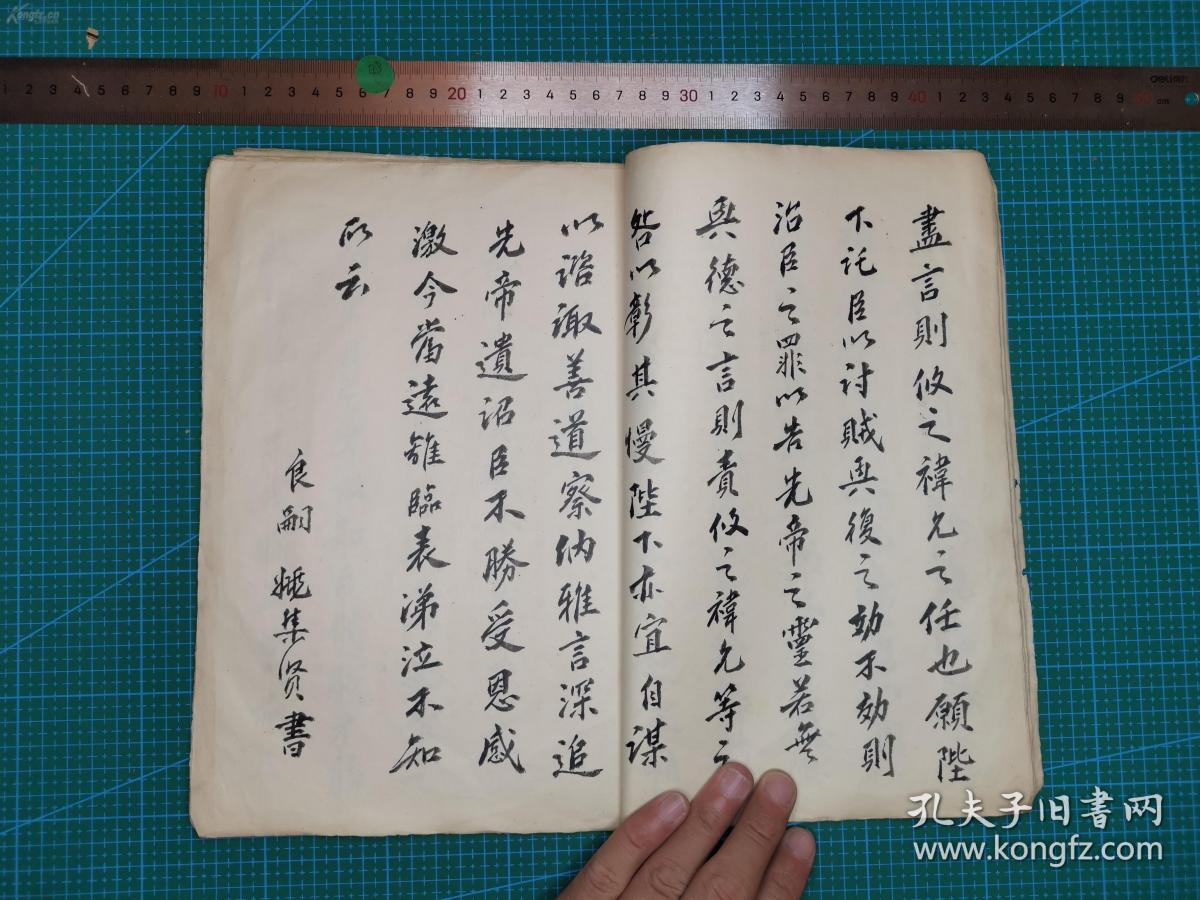 盡言則攸之禕允之任也願陛
下託臣以討賊興復之効不効則
治臣之罪以告先帝之靈若無
興德之言則責攸之禕允等之
咎以彰其慢陛下亦宜自謀
以諮諏善道察納雅言深追
先帝遺詔臣不勝受恩感
激今當遠離臨表涕泣不知
所云
良嗣 姚集贤書
孔夫子旧書网
www.kongfz.com
Kongfz.cn
deli
cm